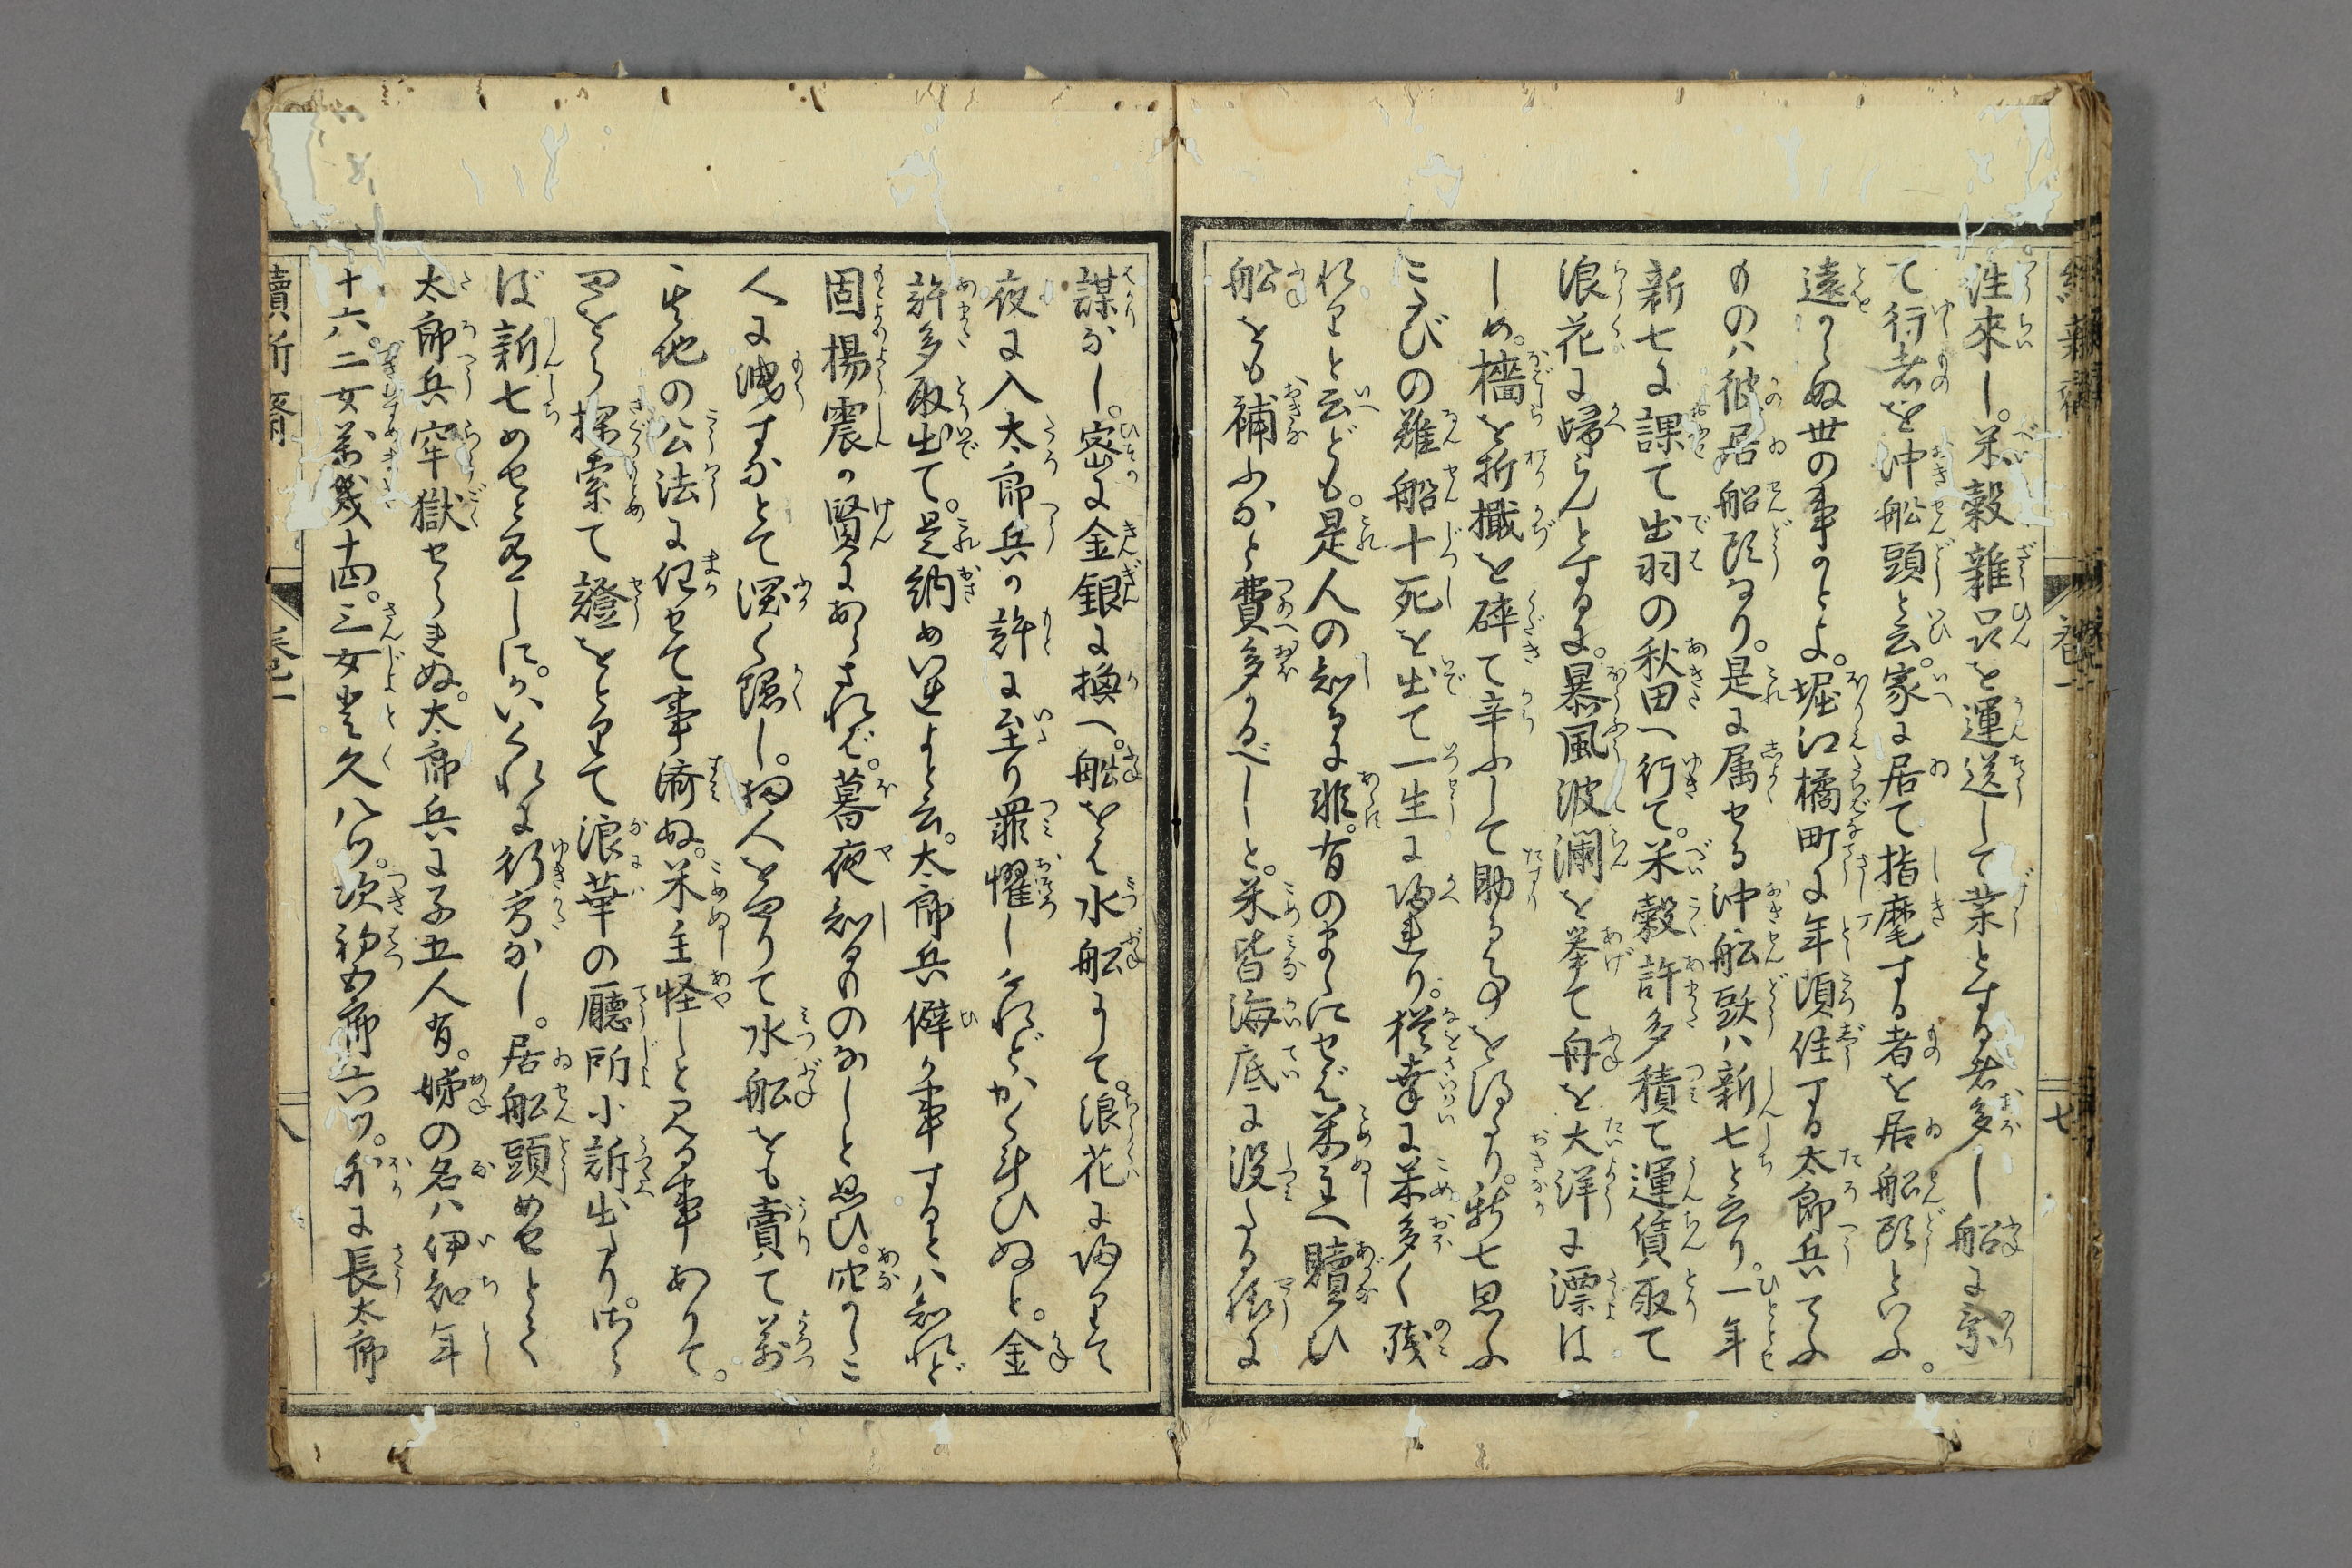 往來し。米穀雑品を運送して業とする者多し船に乗
て行者を沖船頭と云。家に居て指麾する者を居船頭といふ。
遠からぬ世の事かとよ。堀江橘町に年頃住する太郎兵てふ
ものハ彼居船頭なり。是に属せる沖船頭ハ新七と云り。一年
新七に課て出羽の秋田へ行て。米穀許多積て運賃取て
浪花に帰らんとするに。暴風波瀾を挙て舟を大洋に漂は
しめ。檣を折檝を碎て辛ふして助る事を得たり。新七思ふ
にたびの難船十死を出て一生に帰れり。従幸に米多く残
れりと云ども。是人の知るに非。有のまゝにせば米主へ贖ひ
船をも補ふかと費多かるべしと。米皆海底に没たる様に
謀なし。密に金銀に換へ。船をも水船にして。浪花に帰りて
夜に入太郎兵の許に至り罪懼しけれどかく計ひぬと。金
許多取出て。是納めい玉よと云。太郎兵僻か事するとハ知れど
固楊震の賢にあらされば。暮夜知るものなしと思ひ。穴かしこ
人に洩すなとて深く隠し。扨人を語りて水船をも賣て萬
其地の公法に任せて事濟ぬ。米主怪しと見る事ありて。
四とら探索て證をとりて浪華の廳所に訴出たり。さら
ば新七めせと有しに。かいくれに行方なし。居船頭めせとて
太郎兵牢獄せられぬ。太郎兵に子五人有。姉の名ハ伊知年
十六。二女萬幾十四。三女登久八ツ。次初五郎六ツ。外に長太郎
七
八